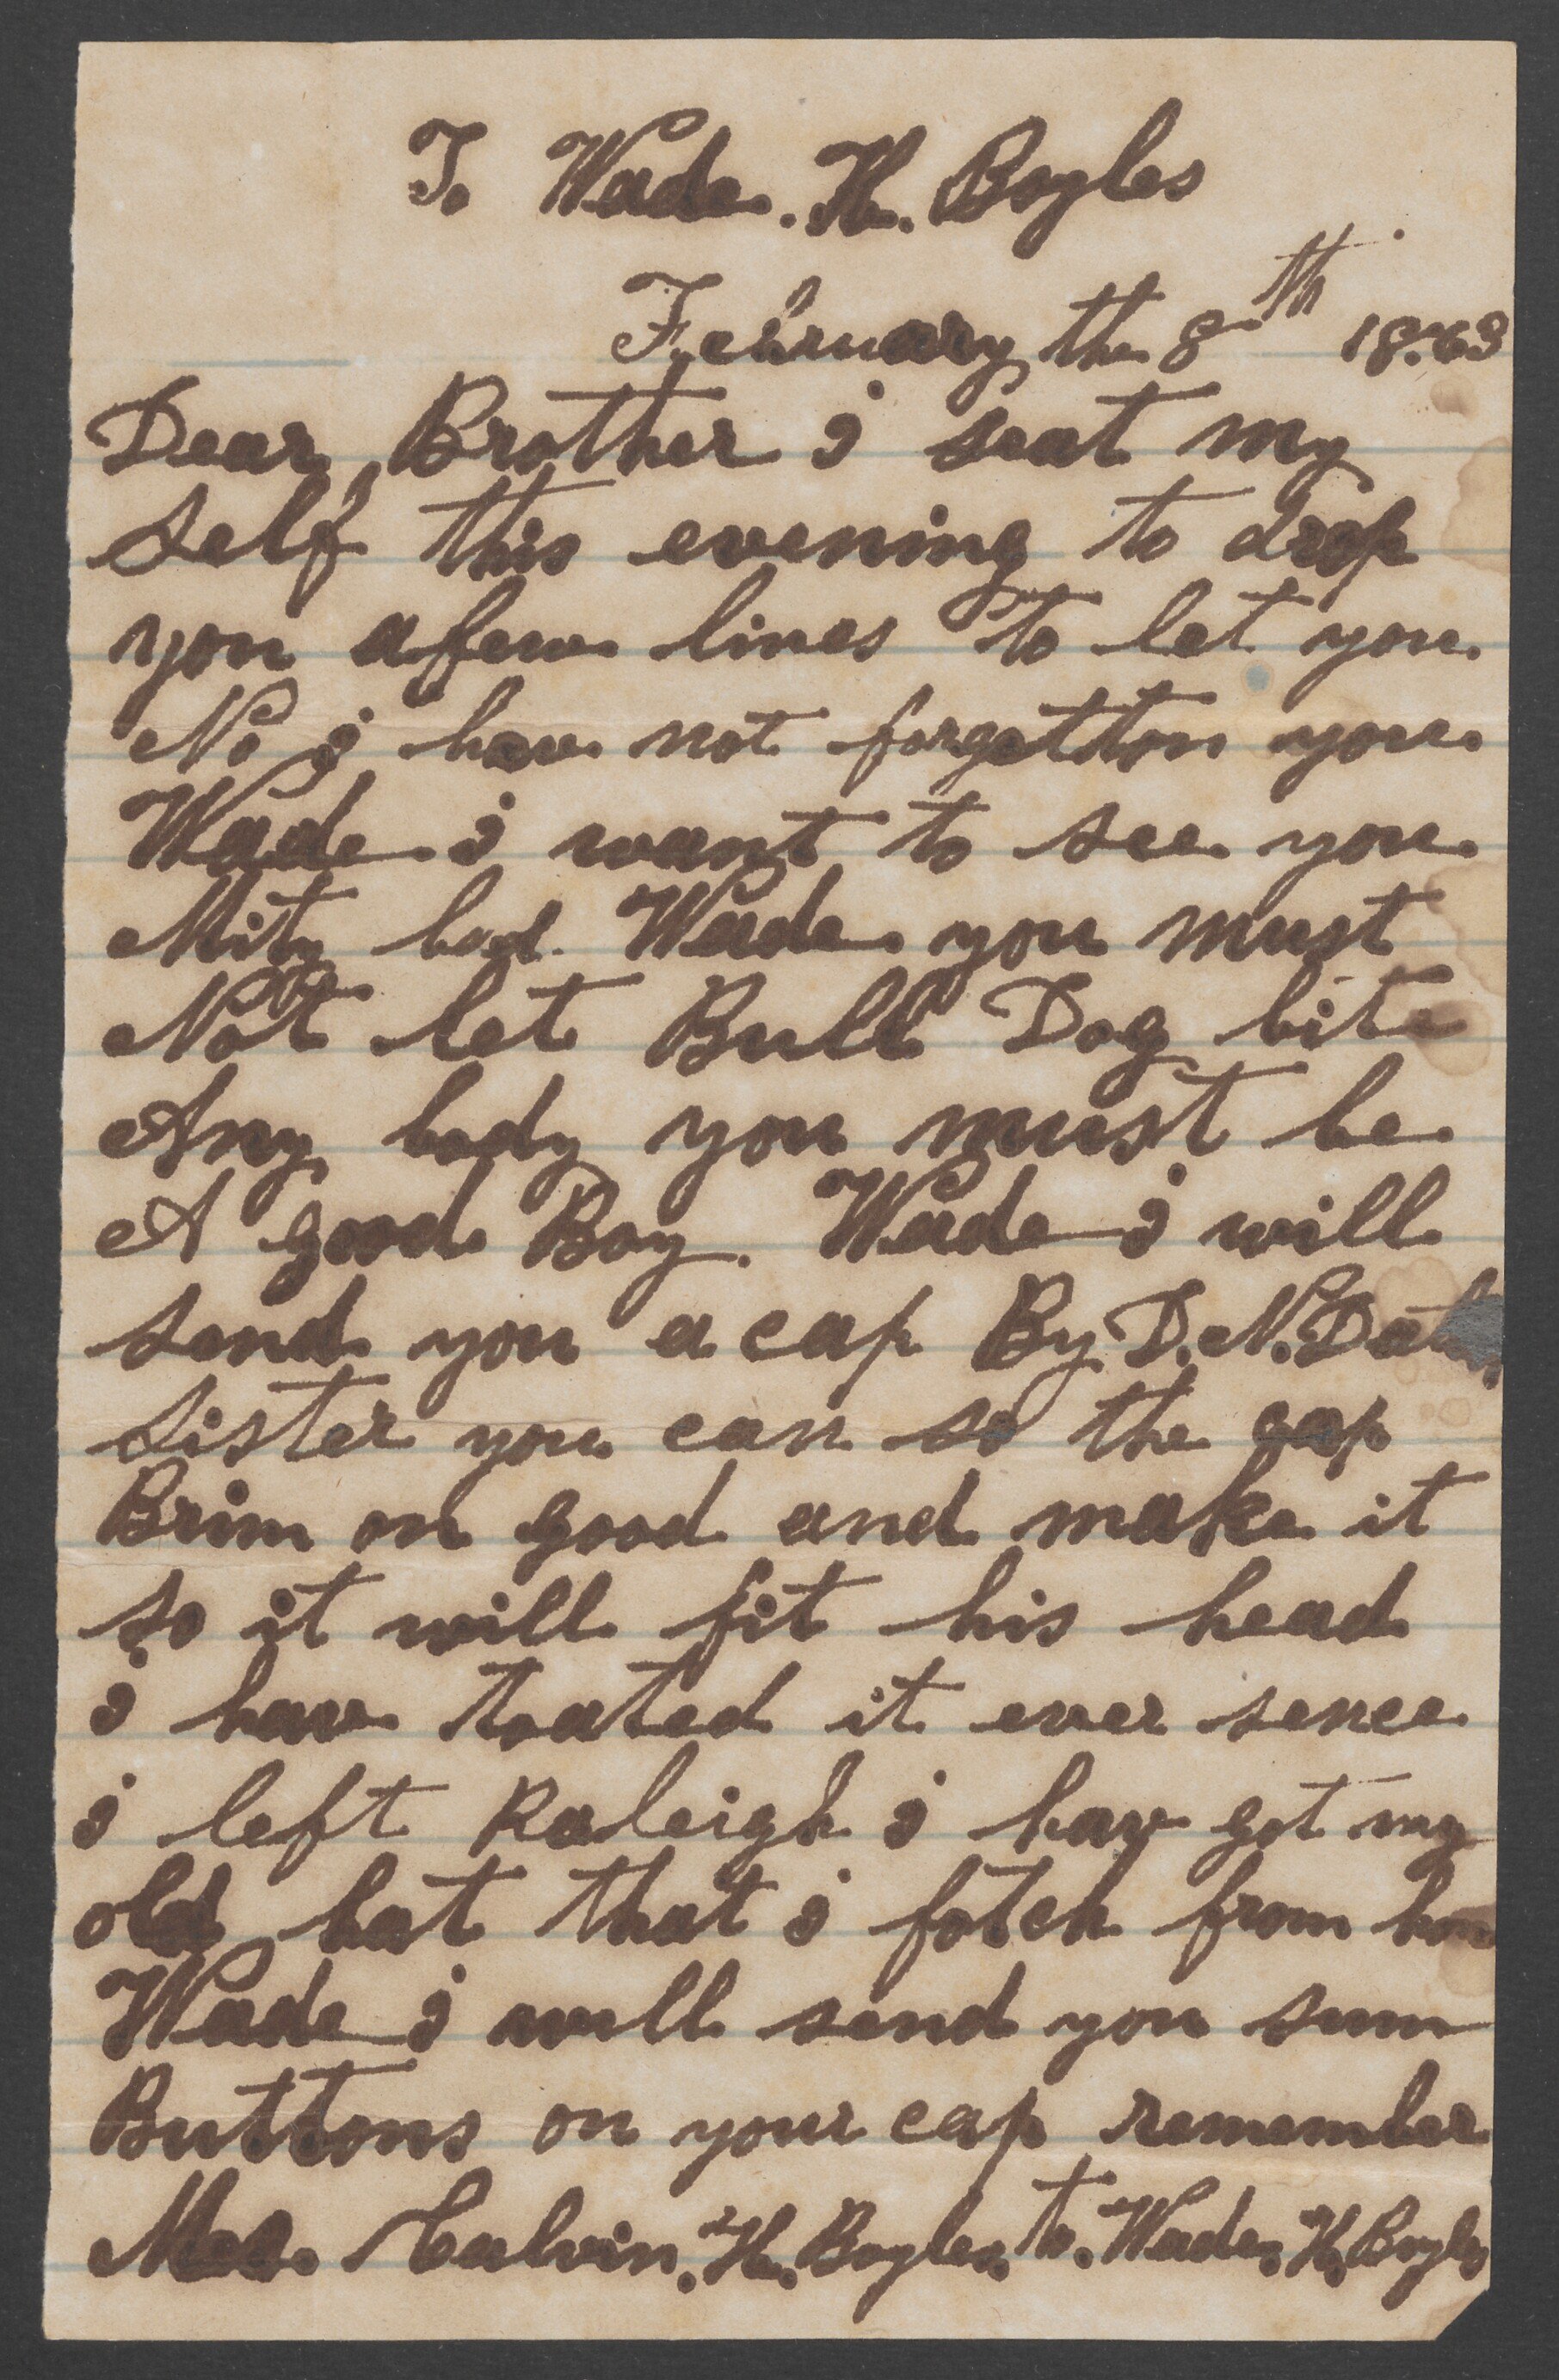 To Wade. H. Boyles
February the 8th 1863
Dear Brother i seat my
self this evening to drop
you afew lines to let you
No i hav not forgotton you
Wade i want to see you
Mity bad Wade you must
Not let Bull Dog bite
Any body you must be
A good Boy. Wade i will
send you a cap By D. N. Dal
sister you can so the cap
Brim on good and make it
so it will fit his head
i hav toated it ever sence
i left Raleigh i hav got my
old hat that i fotch from hom
Wade i will send you sum
Buttons on your cap remember
Mee. Calvin. H. Boyles, to. Wade. H. Boyles